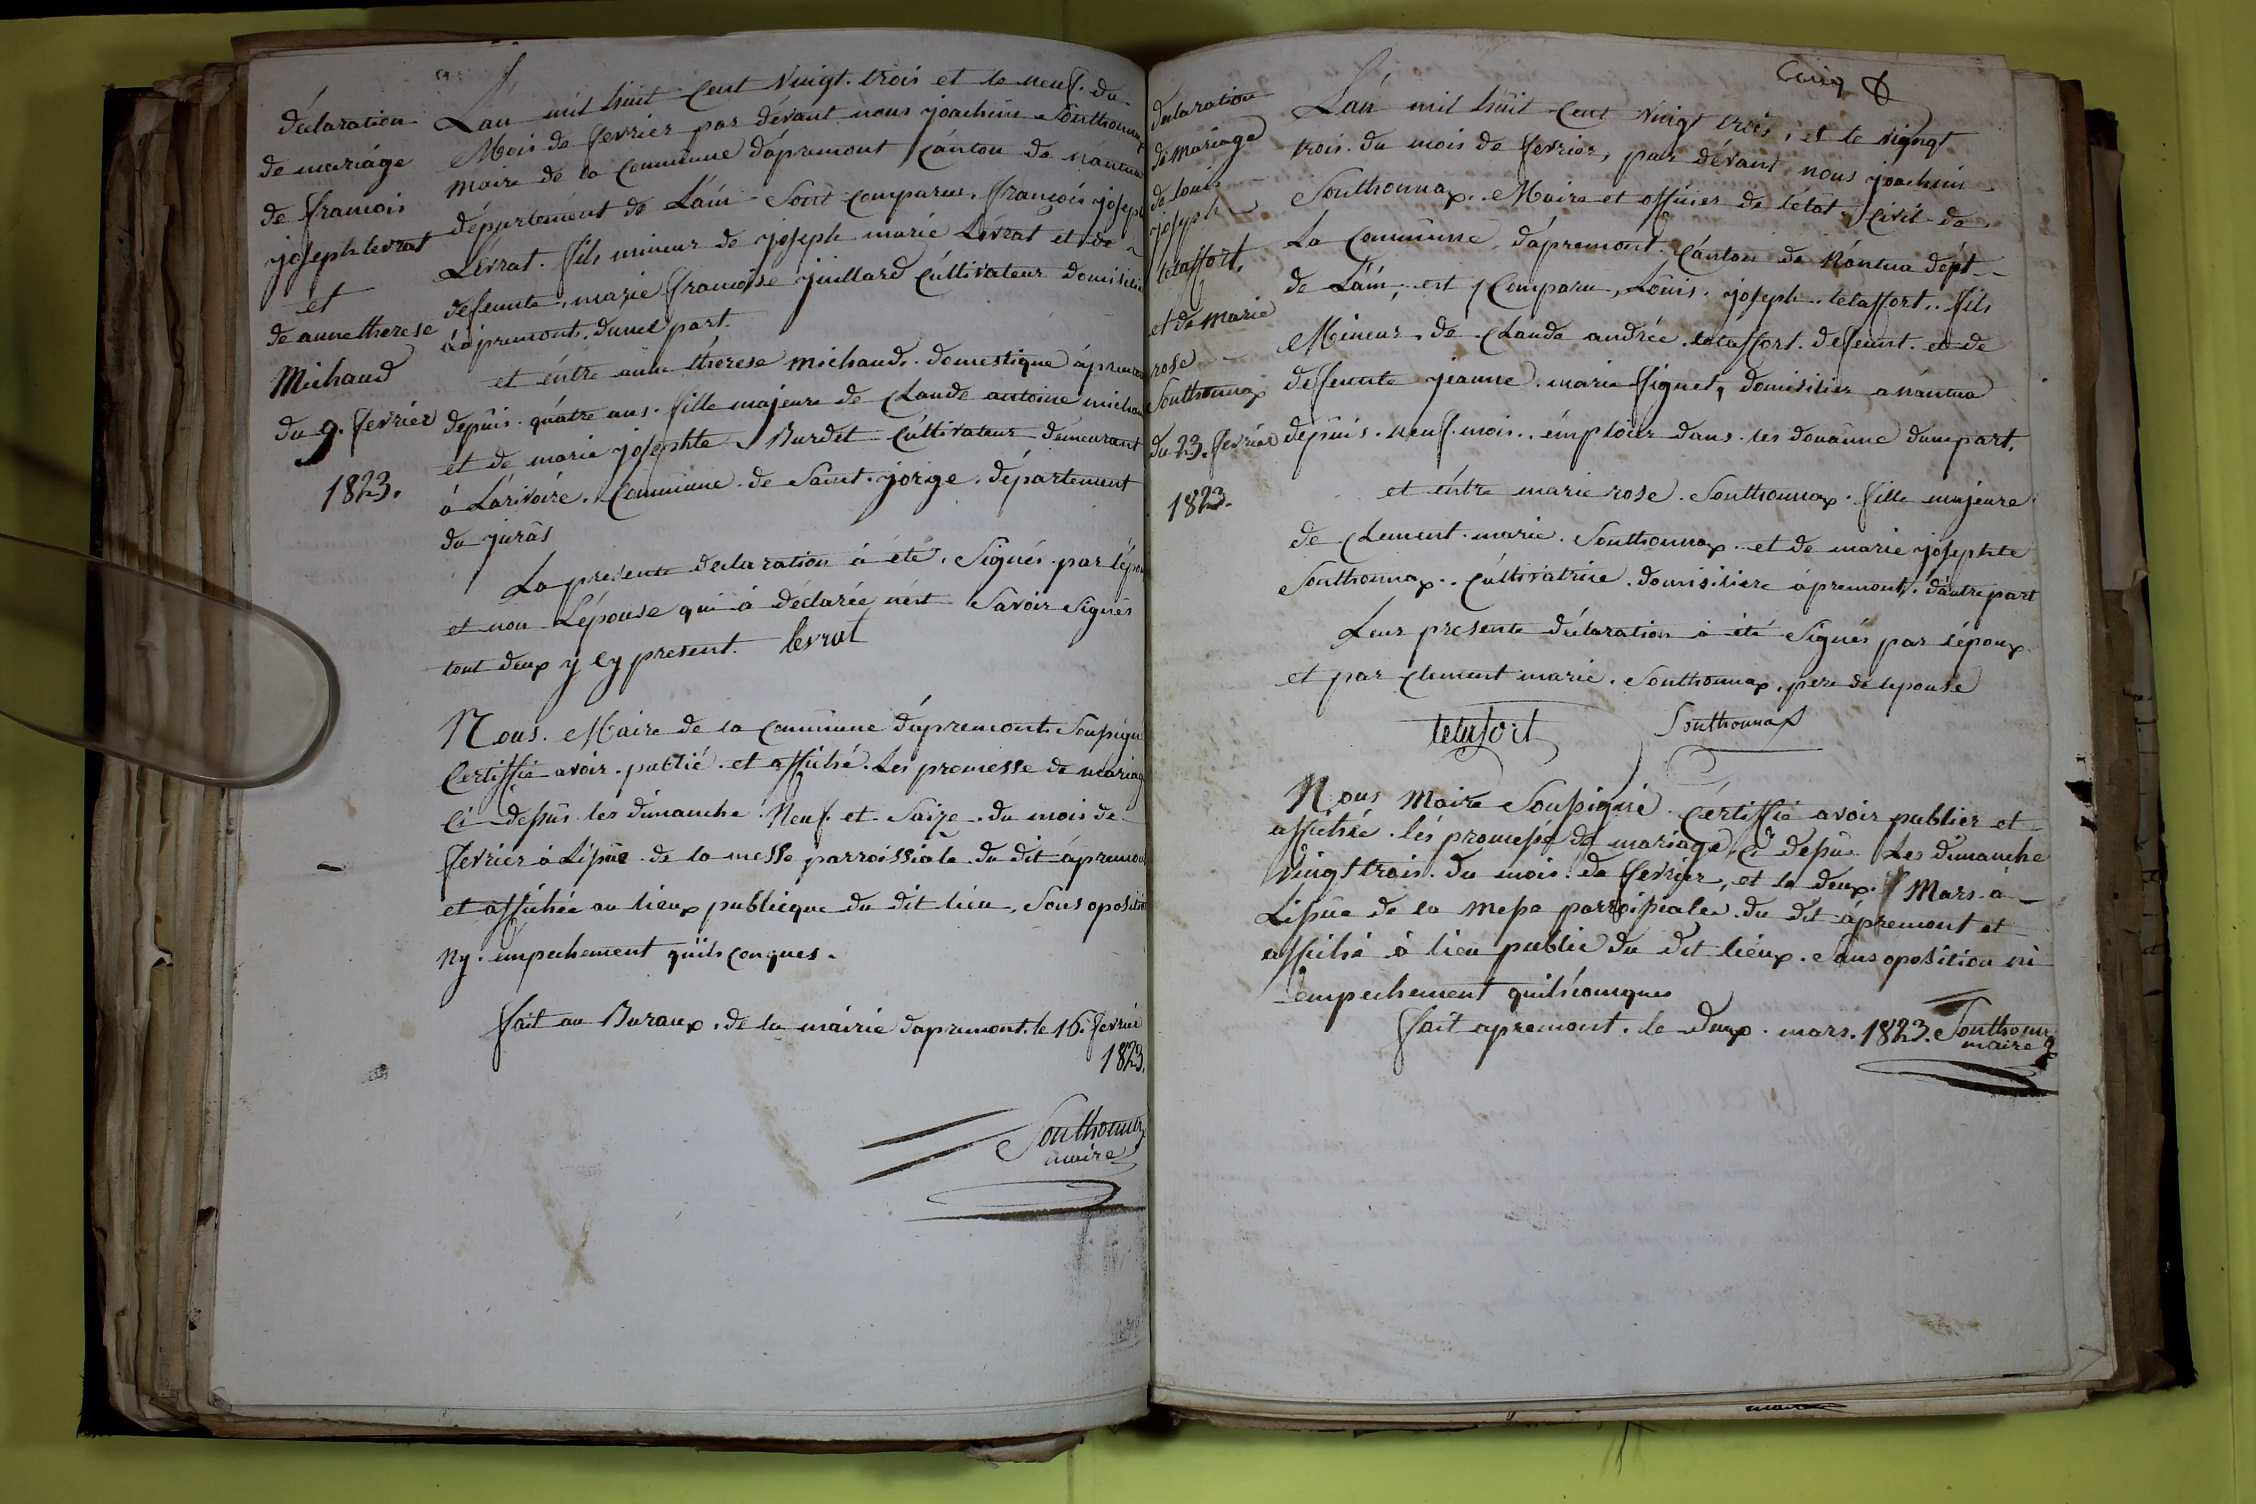 déclaration
de mariage
de francois
joseph levrat
et
de anne therese
Michaud
du 9. fevrier
1823.
L'an mil huit cent vingt. trois et le neuf. du
Mois de fevrier par dévant nous joachim Sonthonnax
maire de la Commune d'apremont Canton de nantua
département de L'ain Sont comparus. francois joseph
Levrat. fils mineur de joseph marie Levrat et de
defeunte. marie francoise juillard Cultivateur domicilié
à apremont. dunne part.
et éntre anne therese michaud. domestique àpremont
depuis. quatre ans. fille majeure de Claude antoine michaud
et de marie josephte Burdet Cultivateur demeurant
à Larivoire. Commune de Saint. jorge. département
du jurâs
La presente declaration à été. Signés par l'époux
et non L'épouse qui à déclarée n'est Savoir Signés
tout deux y cy present. levrat
Nous. Maire de la Commune d'apremont Soussigné
Certiffié avoir. publié. et affiché. Les promesse de mariage
Ci-dessus les dimanche. Neuf. et Saize. du mois de
fevrier à L'issue de la messe parroissiale du dit apremont
et affichée au lieux publicque du dit lieu, Sans oposition
Ny. empechement quils conques.
fait au Buraux. de la mairie dapremont. le 16. fevrier
1823.
Sonthonnax
maire
Cinq
declaration
de mariage
de louis
joseph
letaffort.
et de marie
rose
Sonthonnax
du 23. fevrier
1823.
L'an mil huit Cent vingt trois, et le vigngt
trois. du mois de fevrier, par dévant nous joachim
Sonthonnax. Maire et officier de l'état Civil de
La Commune d'apremont. Canton de Nantua dépt
de L'ain, est Comparu, Louis. joseph. letaffort.. fils
Mineur. de Claude andrée. letaffort. defeunt. et de
deffeunte jeanne. marie figuet, domisilier a nantua
depuis. neuf. mois.. émploier dans. les douanne dune part.
et éntre marie rose. Sonthonnax. fille majeure
de Clement. marie. Sonthonnax. et de marie josephte
Sonthonnax.. Cultivatrice. domisiliere àpremont. d'autre part
Leur presente déclaration à été Signés par l'époux
et par Clement marie. Sonthonnax. pere de lepouse
letafort Sonthonnax
Nous Maire Soussigné. Certiffié avoir publier et
affichée. les promesse de mariage Ci dessu Les dimanche
Vingt trois. du mois. de fevrier, et le deux. Mars. à
L'issue de la Messe parroissiale. du dit apremont et
affiché à lieu public du dit lieux. Sans oposition ni
empechement quilsconques
fait apremont. le deux. mars. 1823. Sonthonnax
maire